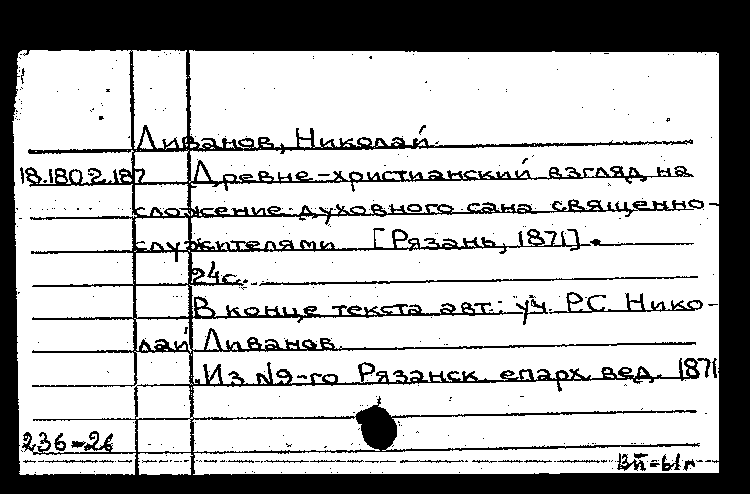 Ливанов, Николай
18.180.2.187 Древне-христианский взгляд на
сложение духовного сана священно-
служителями [Рязань, 1871].
24с.
В конце текста авт.: уч. Р.С. Нико-
лай Ливанов.
Из №9-го Рязанск. епарх. вед. 1871
236-26